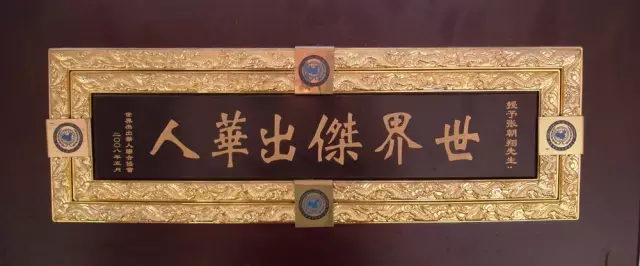 授予张朝翔先生：
世界傑出華人
世界杰出華人聯合協會
二〇〇八年五月